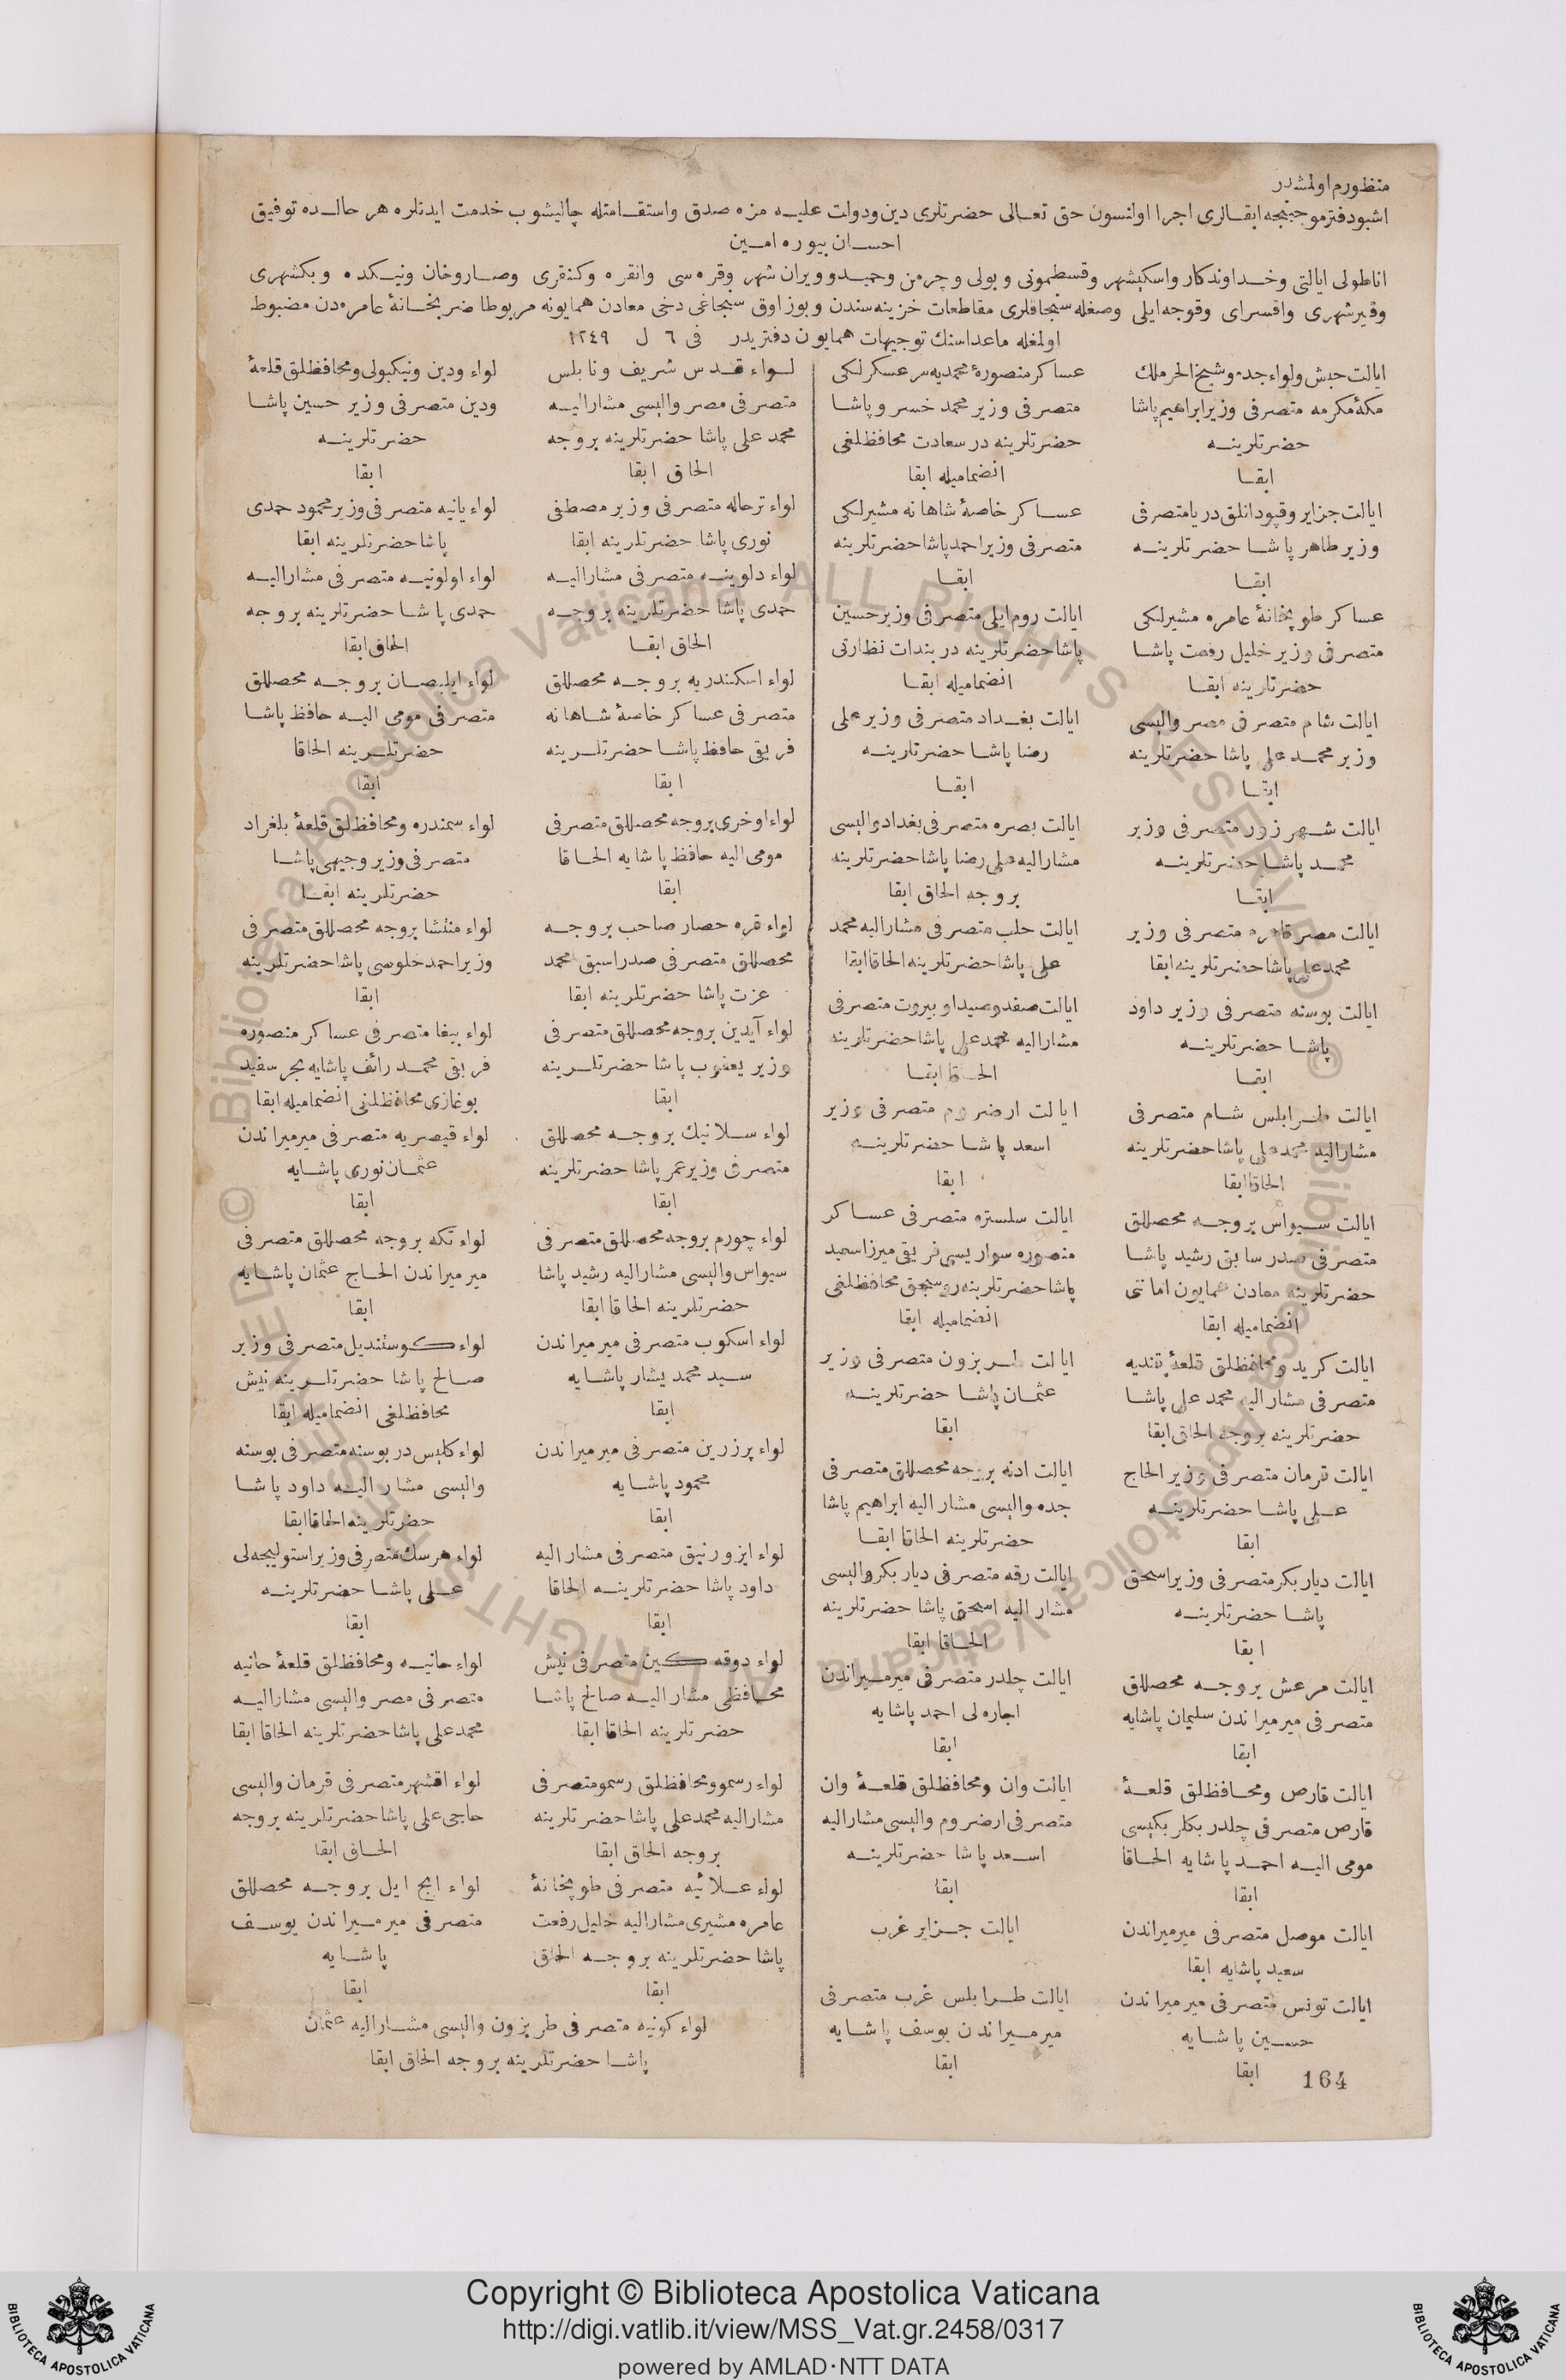 منظورم اولمشدر
اشبو دفتر موجبنجه ابقالری اجرا اولنسون حق تعالی حضرتلری دین ودولت علیه مزه صدق واستقامتله چالیشوب خدمت ایدنلره هر حالده توفیق
احسان بیوره امین
اناطولی ایالتی وخداوندکار واسکیشهر وقسطمونی وبولی وچرمن وحمید وویران شهر وقره سی وانقره وکنقری وصاروخان ونیکده وبکشهری
وقیرشهری واقسرای وقوجه ایلی وصغله سنجاقلری مقاطعات خزینه سندن وبوز اوق سنجاغی دخی معادن همایونه مربوطا ضربخانهٔ عامره دن مضبوط
اولمغله ماعداسنك توجیهات همایون دفتریدر فی ٦ ل ١٢٤٩
ایالت حبش ولواء جده وشیخ الحرملك
مکهٔ مکرمه متصرفی وزیر ابراهیم پاشا
حضرتلرینه
ابقا
ایالت جزایر وقپودانلق دریا متصرفی
وزیر طاهر پاشا حضرتلرینه
ابقا
عساکر طوپخانهٔ عامره مشیرلکی
متصرفی وزیر خلیل رفعت پاشا
حضرتلرینه ابقا
ایالت شام متصرفی مصر والیسی
وزیر محمد علی پاشا حضرتلرینه
ابقا
ایالت شهر زور متصرفی وزیر
محمد پاشا حضرتلرینه
ابقا
ایالت مصر قاهره متصرفی وزیر
محمد علی پاشا حضرتلرینه ابقا
ایالت بوسنه متصرفی وزیر داود
پاشا حضرتلرینه
ابقا
ایالت طرابلس شام متصرفی
مشارالیه محمد علی پاشا حضرتلرینه
الحاقا ابقا
ایالت سیواس بروجه محصللق
متصرفی صدر سابق رشید پاشا
حضرتلرینه معادن همایون امانتی
انضمامیله ابقا
ایالت کرید ومحافظلق قلعهٔ قندیه
متصرفی مشارالیه محمد علی پاشا
حضرتلرینه بروجه الحاق ابقا
ایالت قرمان متصرفی وزیر الحاج
علی پاشا حضرتلرینه
ابقا
ایالت دیار بکر متصرفی وزیر اسحق
پاشا حضرتلرینه
ابقا
ایالت مرعش بروجه محصللق
متصرفی میرمیراندن سلیمان پاشایه
ابقا
ایالت قارص ومحافظلق قلعهٔ
قارص متصرفی چلدر بکلر بکیسی
مومی الیه احمد پاشایه الحاقا
ابقا
ایالت موصل متصرفی میرمیراندن
سعید پاشایه ابقا
ایالت تونس متصرفی میرمیراندن
حسین پاشایه
ابقا
عساکر منصورهٔ محمدیه سر عسکرلکی
متصرفی وزیر محمد خسرو پاشا
حضرتلرینه در سعادت محافظلغی
انضمامیله ابقا
عساکر خاصهٔ شاهانه مشیرلکی
متصرفی وزیر احمد پاشا حضرتلرینه
ابقا
ایالت روم ایلی متصرفی وزیر حسین
پاشا حضرتلرینه دربندات نظارتی
انضمامیله ابقا
ایالت بغداد متصرفی وزیر علی
رضا پاشا حضرتلرینه
ابقا
ایالت بصره متصرفی بغداد والیسی
مشارالیه علی رضا پاشا حضرتلرینه
بروجه الحاق ابقا
ایالت حلب متصرفی مشارالیه محمد
علی پاشا حضرتلرینه الحاقا ابقا
ایالت صفد وصیدا وبیروت متصرفی
مشارالیه محمد علی پاشا حضرتلرینه
الحاقا ابقا
ایالت ارضروم متصرفی وزیر
اسعد پاشا حضرتلرینه
ابقا
ایالت سلستره متصرفی عساکر
منصوره سواریسی فریقی میرزا سعید
پاشا حضرتلرینه روسجق محافظلغی
انضمامیله ابقا
ایالت طربزون متصرفی وزیر
عثمان پاشا حضرتلرینه
ابقا
ایالت ادنه بروجه محصللق متصرفی
جده والیسی مشارالیه ابراهیم پاشا
حضرتلرینه الحاقا ابقا
ایالت رقه متصرفی دیار بکر والیسی
مشارالیه اسحق پاشا حضرتلرینه
الحاقا ابقا
ایالت چلدر متصرفی میرمیراندن
اجاره لی احمد پاشایه
ابقا
ایالت وان ومحافظلق قلعهٔ وان
متصرفی ارضروم والیسی مشارالیه
اسعد پاشا حضرتلرینه
ابقا
ایالت جزایر غرب
ایالت طرابلس غرب متصرفی
میرمیراندن یوسف پاشایه
ابقا
لواء قدس شریف ونابلس
متصرفی مصر والیسی مشارالیه
محمد علی پاشا حضرتلرینه بروجه
الحاق ابقا
لواء ترحاله متصرفی وزیر مصطفی
نوری پاشا حضرتلرینه ابقا
لواء دلوینه متصرفی مشارالیه
حمدی پاشا حضرتلرینه بروجه
الحاق ابقا
لواء اسکندریه بروجه محصللق
متصرفی عساکر خاصهٔ شاهانه
فریقی حافظ پاشا حضرتلرینه
ابقا
لواء اوخری بروجه محصللق متصرفی
مومی الیه حافظ پاشایه الحاقا
ابقا
لواء قره حصار صاحب بروجه
محصللق متصرفی صدر اسبق محمد
عزت پاشا حضرتلرینه ابقا
لواء آیدین بروجه محصللق متصرفی
وزیر یعقوب پاشا حضرتلرینه
ابقا
لواء سلانیك بروجه محصللق
متصرفی وزیر عمر پاشا حضرتلرینه
ابقا
لواء چورم بروجه محصللق متصرفی
سیواس والیسی مشارالیه رشید پاشا
حضرتلرینه الحاقا ابقا
لواء اسکوب متصرفی میرمیراندن
سید محمد یشار پاشایه
ابقا
لواء پرزرین متصرفی میرمیراندن
محمود پاشایه
ابقا
لواء ایزورنیق متصرفی مشارالیه
داود پاشا حضرتلرینه الحاقا
ابقا
لواء دوقه کین متصرفی نیش
محافظی مشارالیه صالح پاشا
حضرتلرینه الحاقا ابقا
لواء رسمو ومحافظلق رسمو متصرفی
مشارالیه محمد علی پاشا حضرتلرینه
بروجه الحاق ابقا
لواء علائیه متصرفی طوپخانهٔ
عامره مشیری مشارالیه خلیل رفعت
پاشا حضرتلرینه بروجه الحاق
ابقا
لواء ودین ونیکبولی ومحافظلق قلعهٔ
ودین متصرفی وزیر حسین پاشا
حضرتلرینه
ابقا
لواء یانیه متصرفی وزیر محمود حمدی
پاشا حضرتلرینه ابقا
لواء اولونیه متصرفی مشارالیه
حمدی پاشا حضرتلرینه بروجه
الحاق ابقا
لواء ایلبصان بروجه محصللق
متصرفی مومی الیه حافظ پاشا
حضرتلرینه الحاقا
ابقا
لواء سمندره ومحافظلق قلعهٔ بلغراد
متصرفی وزیر وجیهی پاشا
حضرتلرینه ابقا
لواء منتشا بروجه محصللق متصرفی
وزیر احمد خلوصی پاشا حضرتلرینه
ابقا
لواء بیغا متصرفی عساکر منصوره
فریقی محمد رائف پاشایه بحر سفید
بوغازی محافظلغی انضمامیله ابقا
لواء قیصریه متصرفی میرمیراندن
عثمان نوری پاشایه
ابقا
لواء تکه بروجه محصللق متصرفی
میرمیراندن الحاج عثمان پاشایه
ابقا
لواء کوستندیل متصرفی وزیر
صالح پاشا حضرتلرینه نیش
محافظلغی انضمامیله ابقا
لواء کلیس در بوسنه متصرفی بوسنه
والیسی مشارالیه داود پاشا
حضرتلرینه الحاقا ابقا
لواء هرسك متصرفی وزیر استولیجه لی
علی پاشا حضرتلرینه
ابقا
لواء حانیه ومحافظلق قلعهٔ حانیه
متصرفی مصر والیسی مشارالیه
محمد علی پاشا حضرتلرینه الحاقا ابقا
لواء اقشهر متصرفی قرمان والیسی
حاجی علی پاشا حضرتلرینه بروجه
الحاق ابقا
لواء ایج ایل بروجه محصللق
متصرفی میرمیراندن یوسف
پاشایه
ابقا
لواء کونیه متصرفی طربزون والیسی مشارالیه عثمان
پاشا حضرتلرینه بروجه الحاق ابقا
164
© Biblioteca Apostolica Vaticana ALL RIGHTS RESERVED
© Biblioteca Apostolica Vaticana ALL RIGHTS RESERVED
Copyright © Biblioteca Apostolica Vaticana
http://digi.vatlib.it/view/MSS_Vat.gr.2458/0317
powered by AMLAD·NTT DATA
BIBLIOTECA APOSTOLICA VATICANA
BIBLIOTECA APOSTOLICA VATICANA